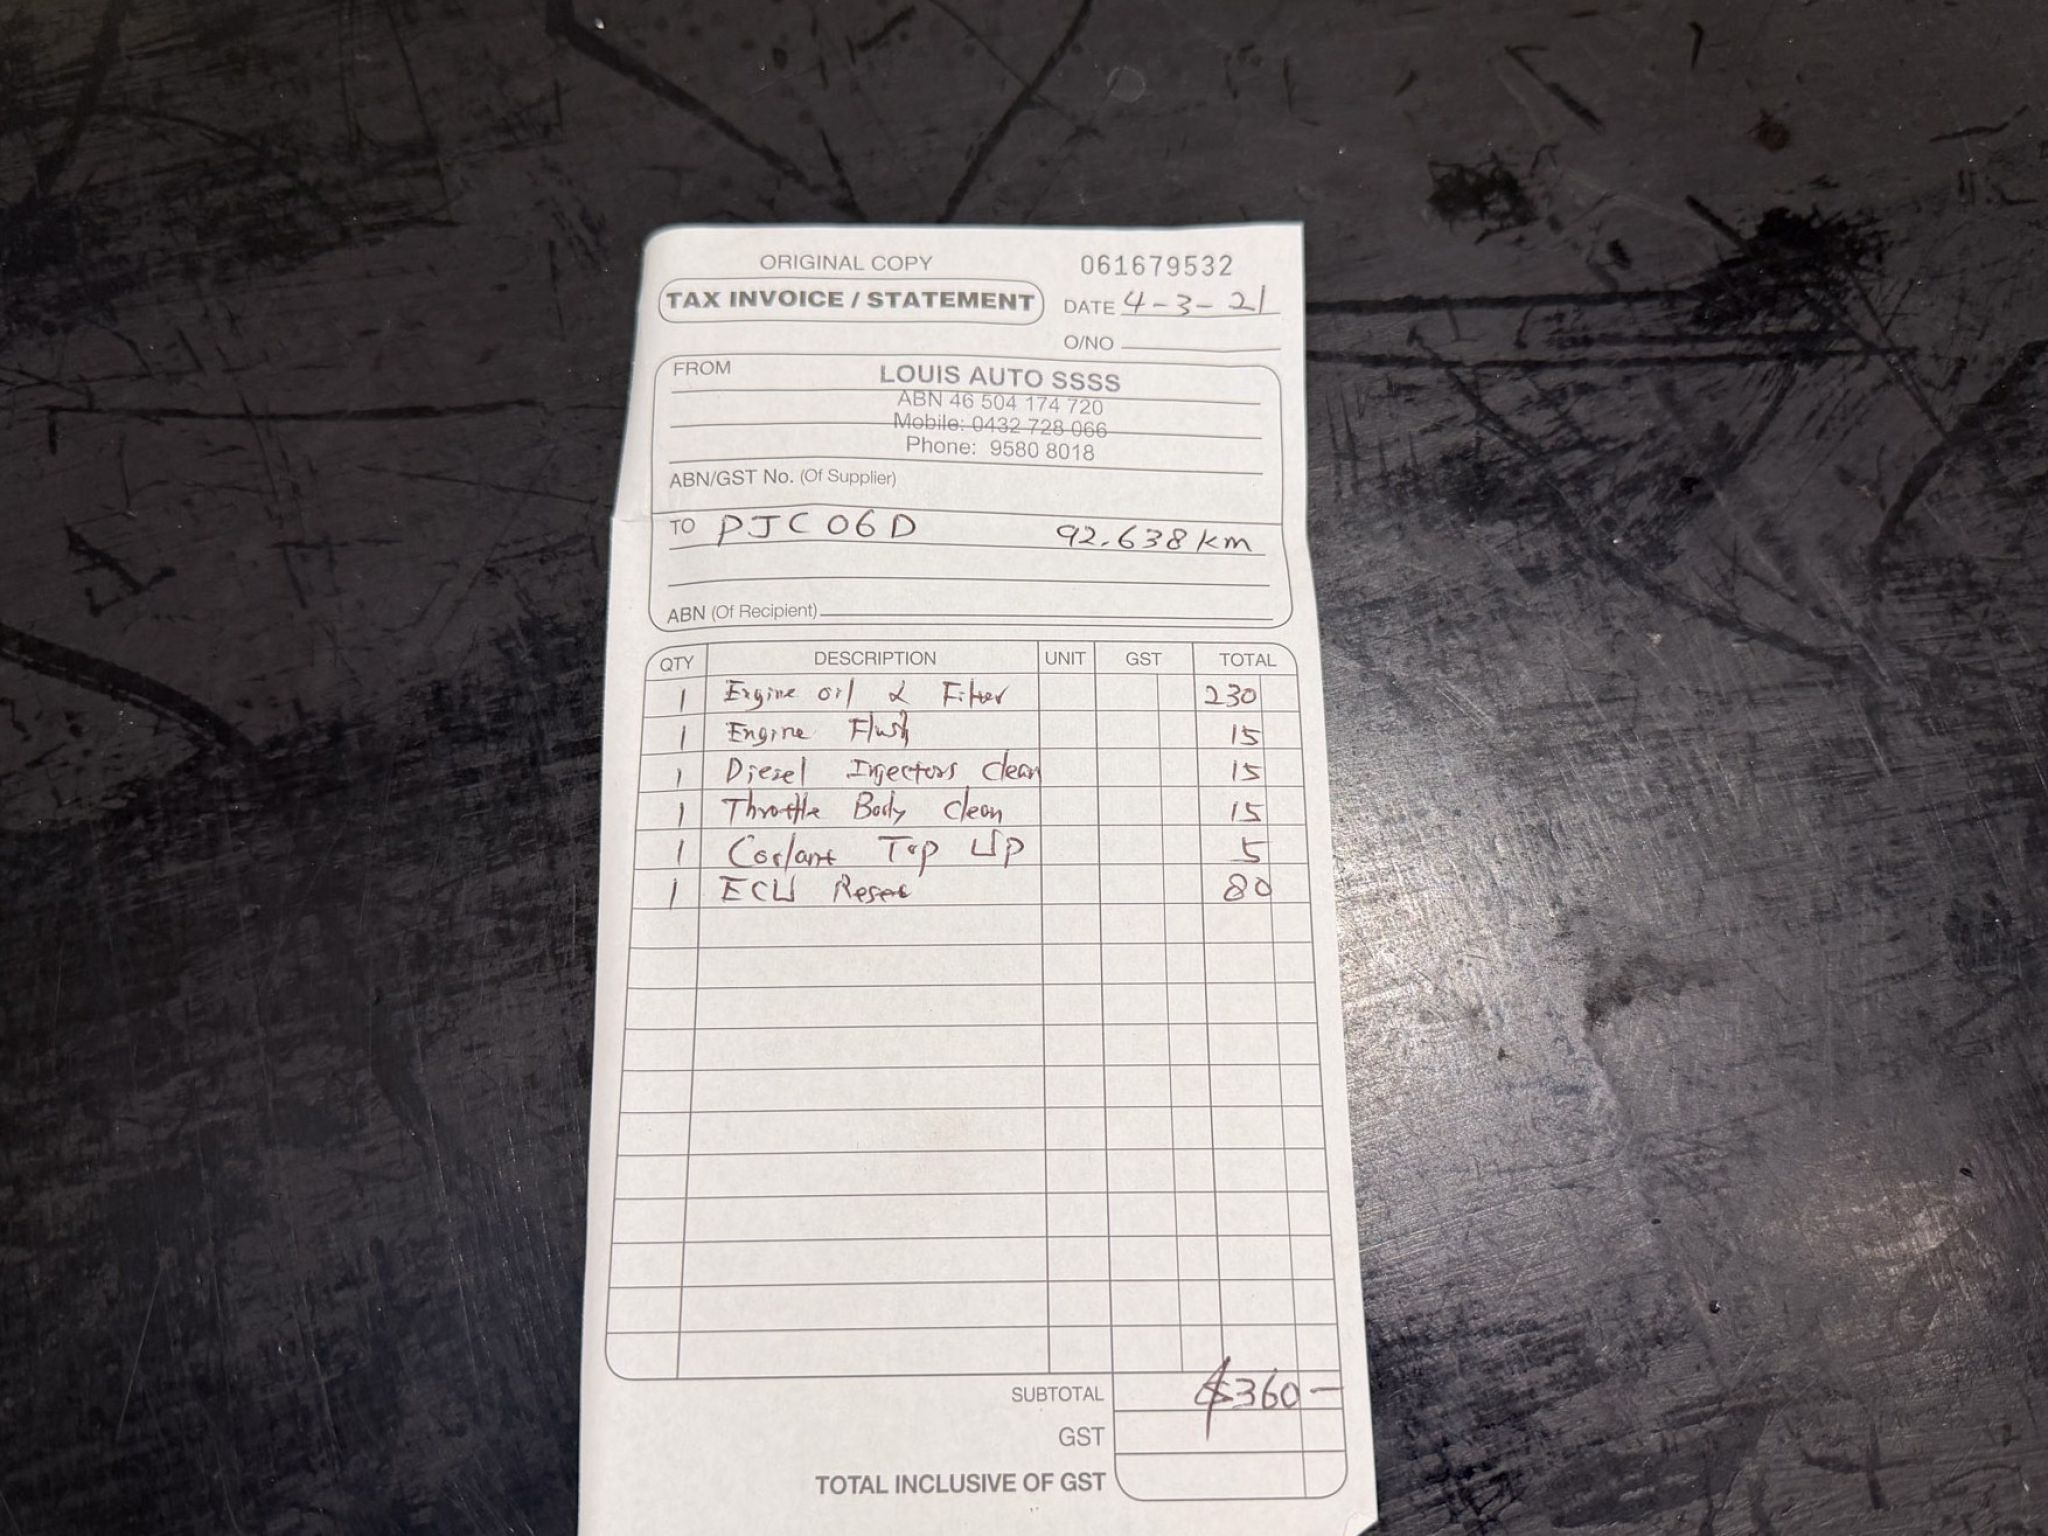 ORIGINAL COPY 061679532
TAX INVOICE / STATEMENT DATE 4-3-21
O/NO
FROM LOUIS AUTO SSSS
ABN 46 504 174 720
Mobile: 0432 728 066
Phone: 9580 8018
ABN/GST No. (Of Supplier)
TO PJC06D 92.638km
ABN (Of Recipient)
QTY DESCRIPTION UNIT GST TOTAL
1 Engine oil & Filter 230
1 Engine Flush 15
1 Diesel Injectors Clean 15
1 Throttle Body Clean 15
1 Coolant Top Up 5
1 ECU Reset 80
SUBTOTAL $360-
GST
TOTAL INCLUSIVE OF GST